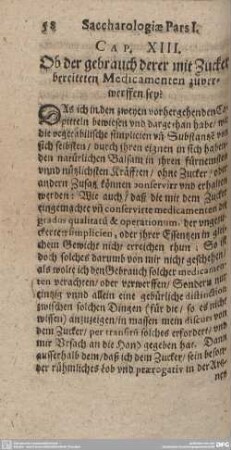 58 Saccharologiæ Pars I.
CAP. XIII.
Ob der gebrauch derer mit Zucker
bereiteten Medicamenten zuver-
werffen sey?
DAs ich in den zweyen vorhergehenden Ca-
pitteln bewiesen und dargethan habe / wie
die vegetabilische simplicien uñ Substantz vor
sich selbsten / durch ihren eignen in sich haben
den natürlichen Balsam in ihren fürnemsten
und nützlichsten Kräfften / ohne Zucker / oder
andern Zusatz können conservirt und erhalten
werden: Wie auch / daß die mit dem Zucker
eingemachte uñ conservirte medicamenten die
gradū qualitatū & operationum, der
simplicien, oder ihrer Essentzen in glei
chem Gewicht nicht erreichen thun. So ist
doch solches darumb von mir nicht geschehen /
als wolte ich den Gebrauch solcher medicamen
ten verachten / oder verwerffen / Sondern nur
eintzig und allein eine gebürliche distinction
zwischen solchen Dingen (für die / so es nicht
wissen) anzuzeigen / in massen mein discurs von
dem Zucker / per transitū solches erfordert / und
mir Ursach an die Hand gegeben hat. Dann
ausserhalb dem / daß ich dem Zucker / sein beson
der rühmliches Lob und prærogativ in der Artz-